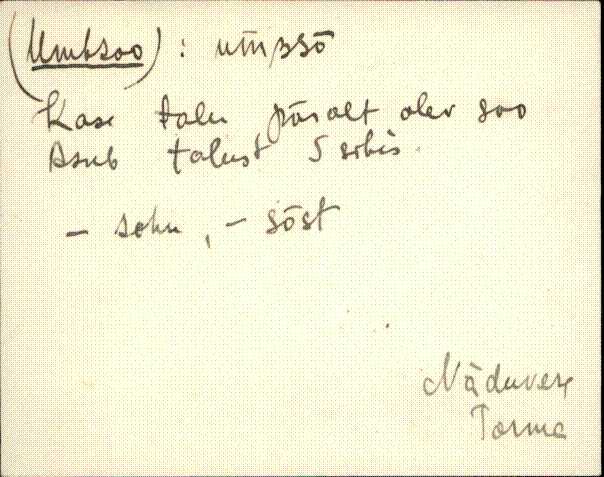 (Umbsoo) : um̄ssō
Kase talu päralt olev soo
Asub talust S sihis.
- sohu, - sōst
Näduvere
Torma